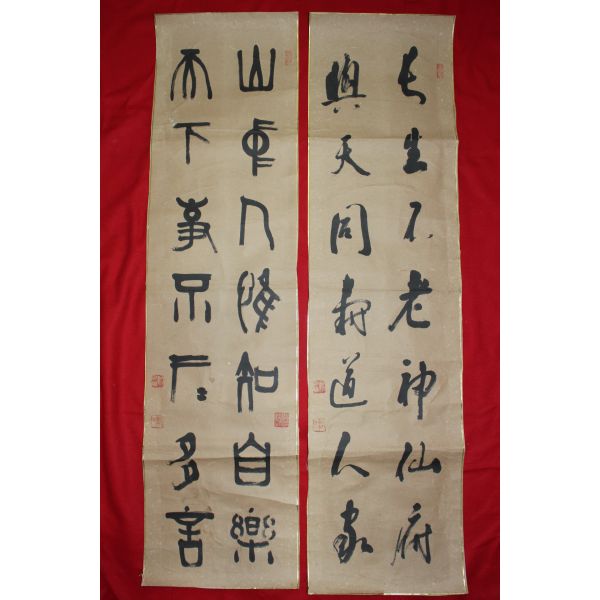 長生不老神仙府
與天同壽道人家
山中人惟知自樂
天下事不在多言